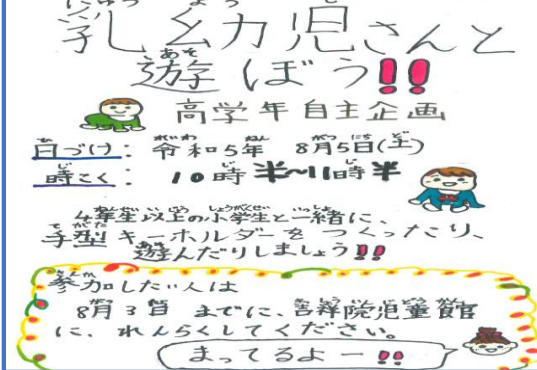 乳幼児さんと
遊ぼう!!
高学年自主企画
日づけ: 令和5年 8月5日(土)
時こく: 10時半〜11時半
4年生以上の小学生と一緒に、
手型キーホルダーをつくったり、
遊んだりしましょう!!
参加したい人は
8月3日 までに、吉祥院児童館
に、れんらくしてください。
まってるよー!!